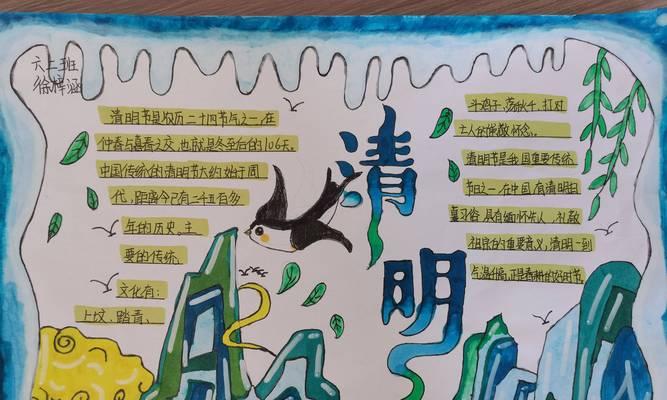 六二班
徐梓涵
清明节是农历二十四节气之一,在
仲春与暮春之交,也就是冬至后的106天。
中国传统的清明节大约始于周
代,距离今已有二千五百多
年的历史,主
要的传统
文化有:
上坟、踏青、
清
明
斗鸡子、荡秋千、打
清明节是我国重要传统
节日之一,在中国,有清明扫
墓习俗,具有缅怀先人、礼敬
祖宗的重要意义,清明一到
气温升高,正是春耕的好时节